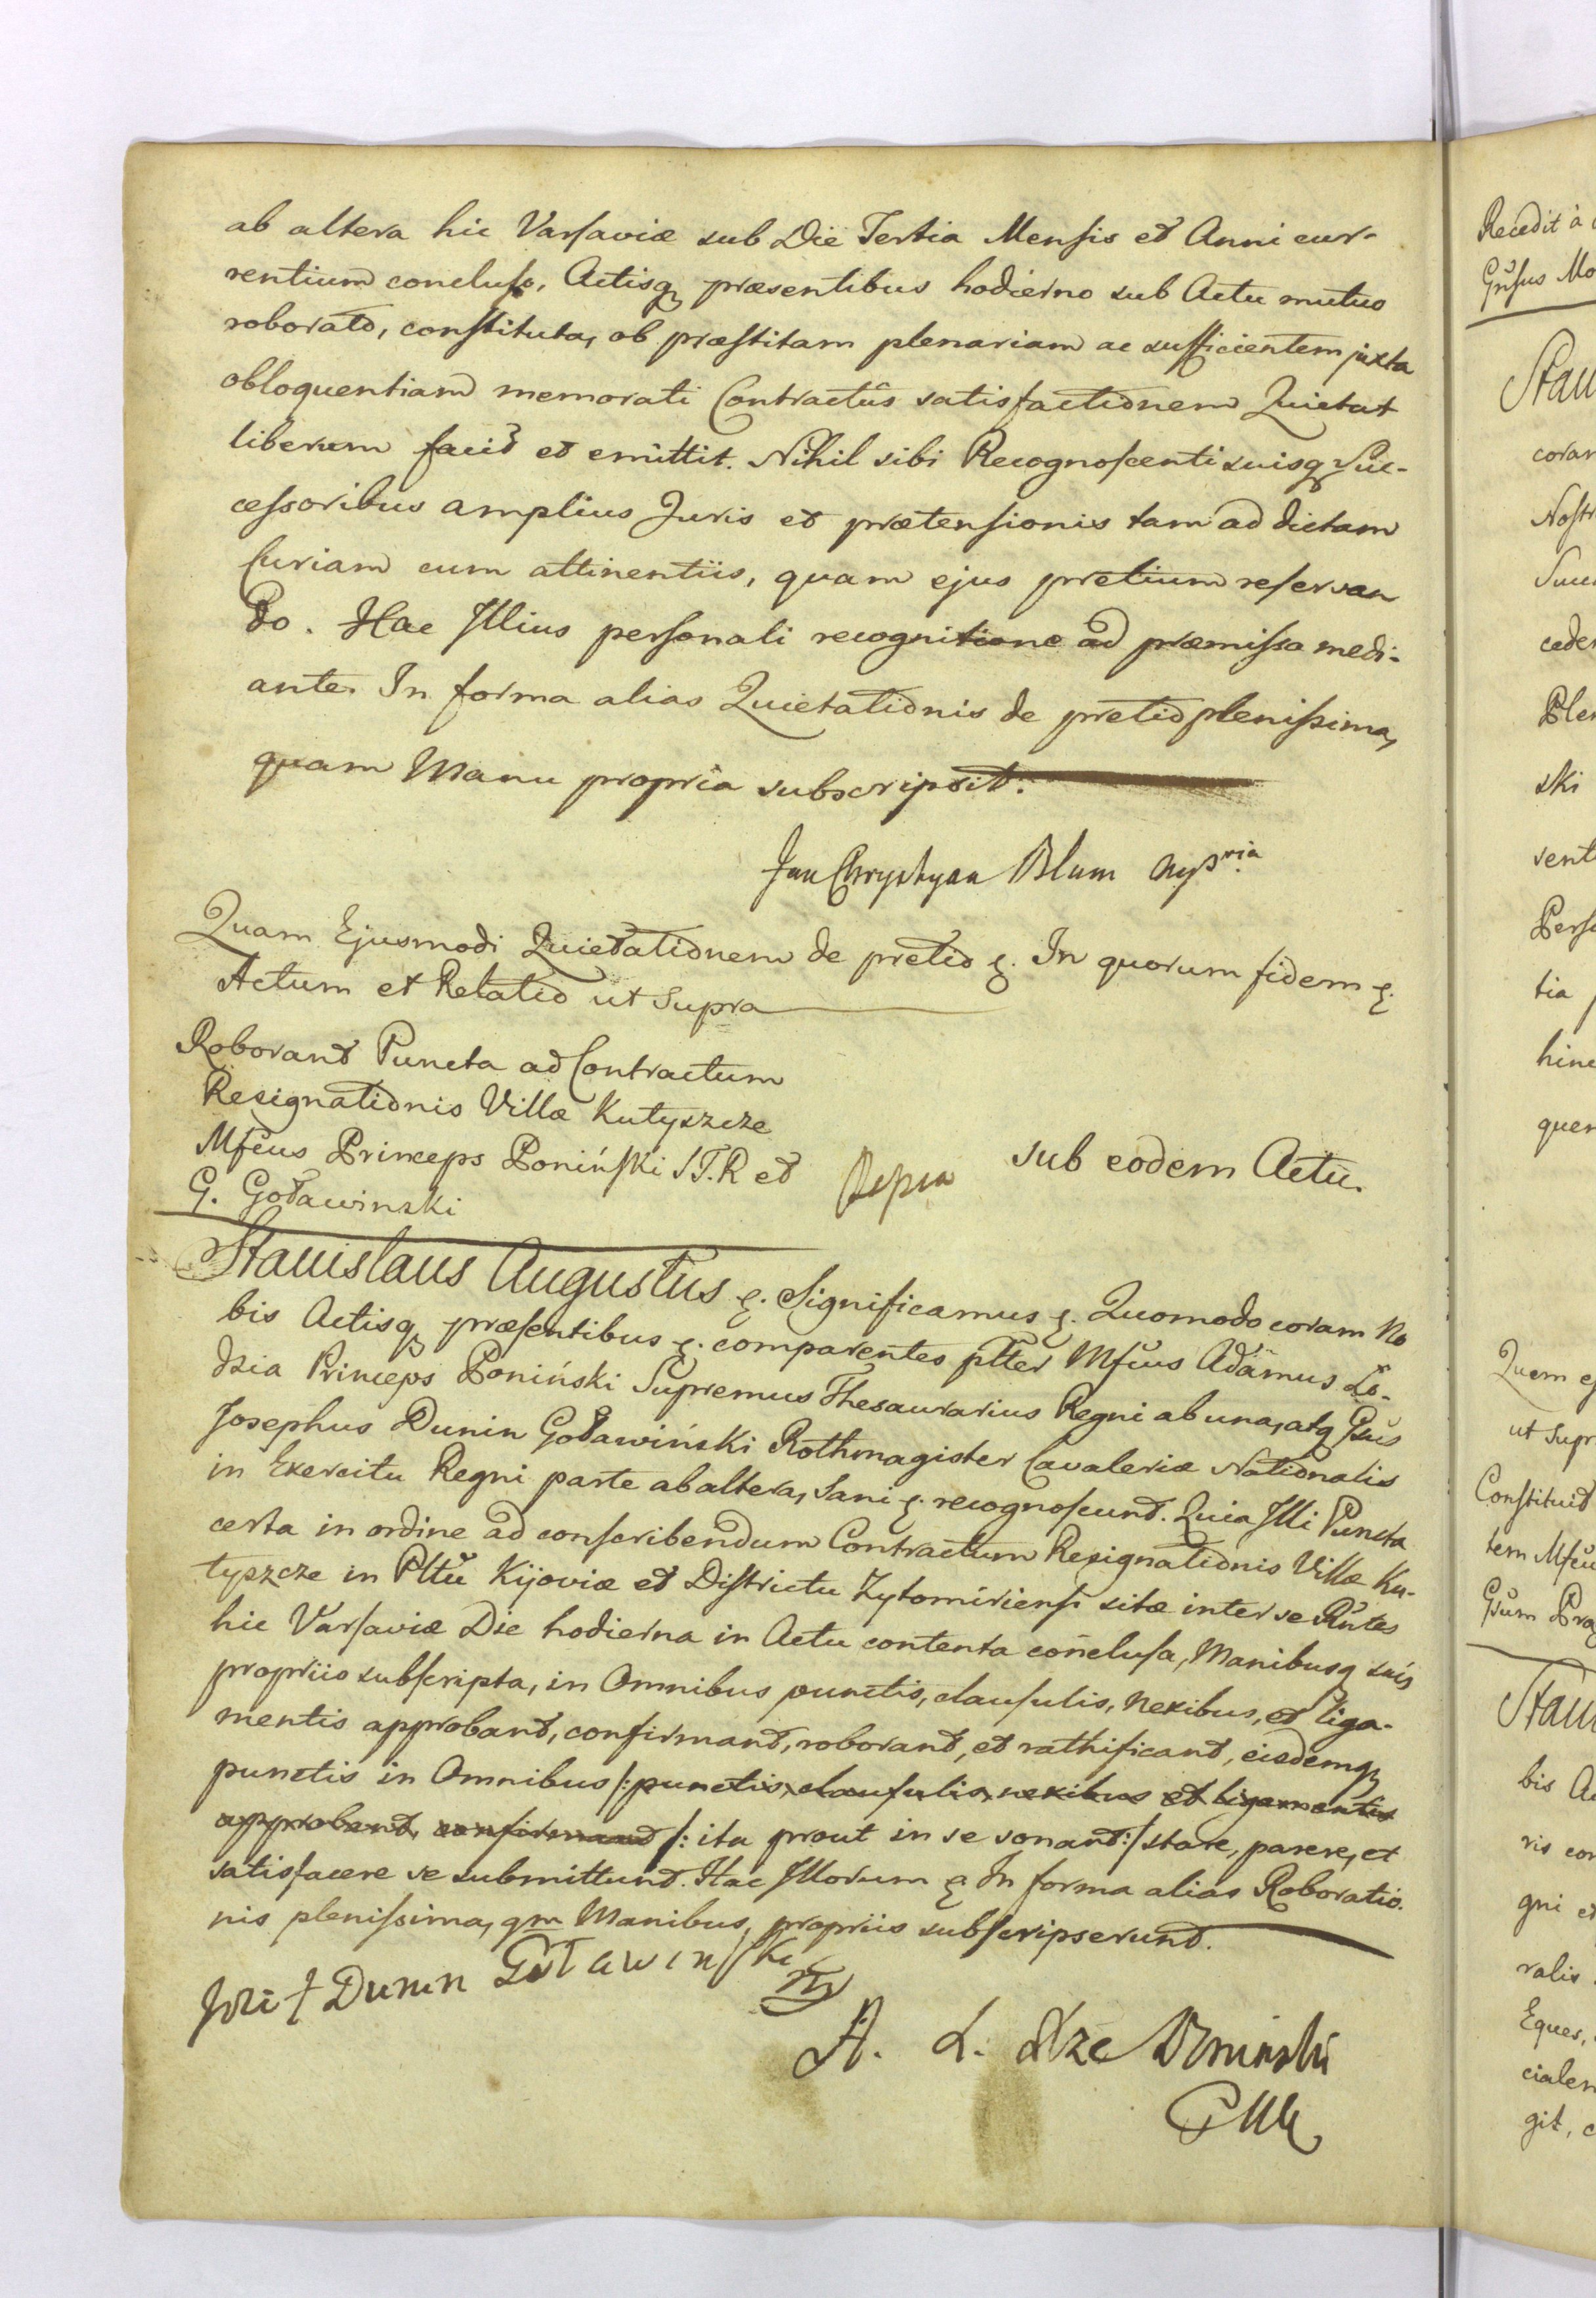 ab altera hic Varsaviæ sub Die Tertia Mensis et Anni cur-
rentium concluso, Actisq præsentibus hodierno sub Actu mutuo
roborato, constituta, ob præstitam plenariam ac sufficientem juxta
obloquentiam memorati Contractûs satisfactionem Quietat
liberum facit et emittit. Nihil sibi Recognoscenti suisq Suc-
cessoribus amplius Juris et prætensionis tam ad dictam
Curiam cum attinentiis, quam ejus pretium reservan
do. Hac Illius personali recognitione ad præmissa medi-
ante. In forma alias Quietationis de pretio plenissima,
quam Manu propria subscripsit.
Jan Chrystyan Blum mp ria
Quam Ejusmodi Quietationem de pretio &. In quorum fidem &.
Actum et Relatio ut Supra
Roborant Puncta ad Contractum
Resignationis Villæ Kutyszcze
Mfcus Princeps Poniński S.T.R et
G. Goławinski
sub eodem Actu.
Stanislaus Augustus &. Significamus &. Quomodo coram No
bis Actisq præsentibus &. comparentes pltter Mfcus Adamus Lo-
dzia Princeps Poniński Supremus Thesaurarius Regni ab una, atq Gsus
Josephus Dunin Goławiński Rothmagister Cavaleriæ Nationalis
in Exercitu Regni parte ab altera, Sani &. recognoscunt. Quia Illi Puncta
certa in ordine ad conscribendum Contractum Resignationis Villæ Ku-
tyszcze in Pltu Kijoviæ et Districtu Zytomiriensi sitæ inter se Rntes
hic Varsaviæ Die hodierna in Actu contenta conclusa, Manibusq suis
propriis subscripta, in Omnibus punctis, clausulis, nexibus, et liga-
mentis approbant, confirmant, roborant, et rathificant, eisdemq
punctis in Omnibus /: punctis, clausulis, nexibus et ligamentis
approbant, confirmant /: ita prout in se sonant :/ stare, parere, et
satisfacere se submittunt. Hac Illorum &. In forma alias Roboratio-
nis plenissima, qm Manibus propriis subscripserunt.
Dunin Goławinski
mp
A. L. Xże Poninski